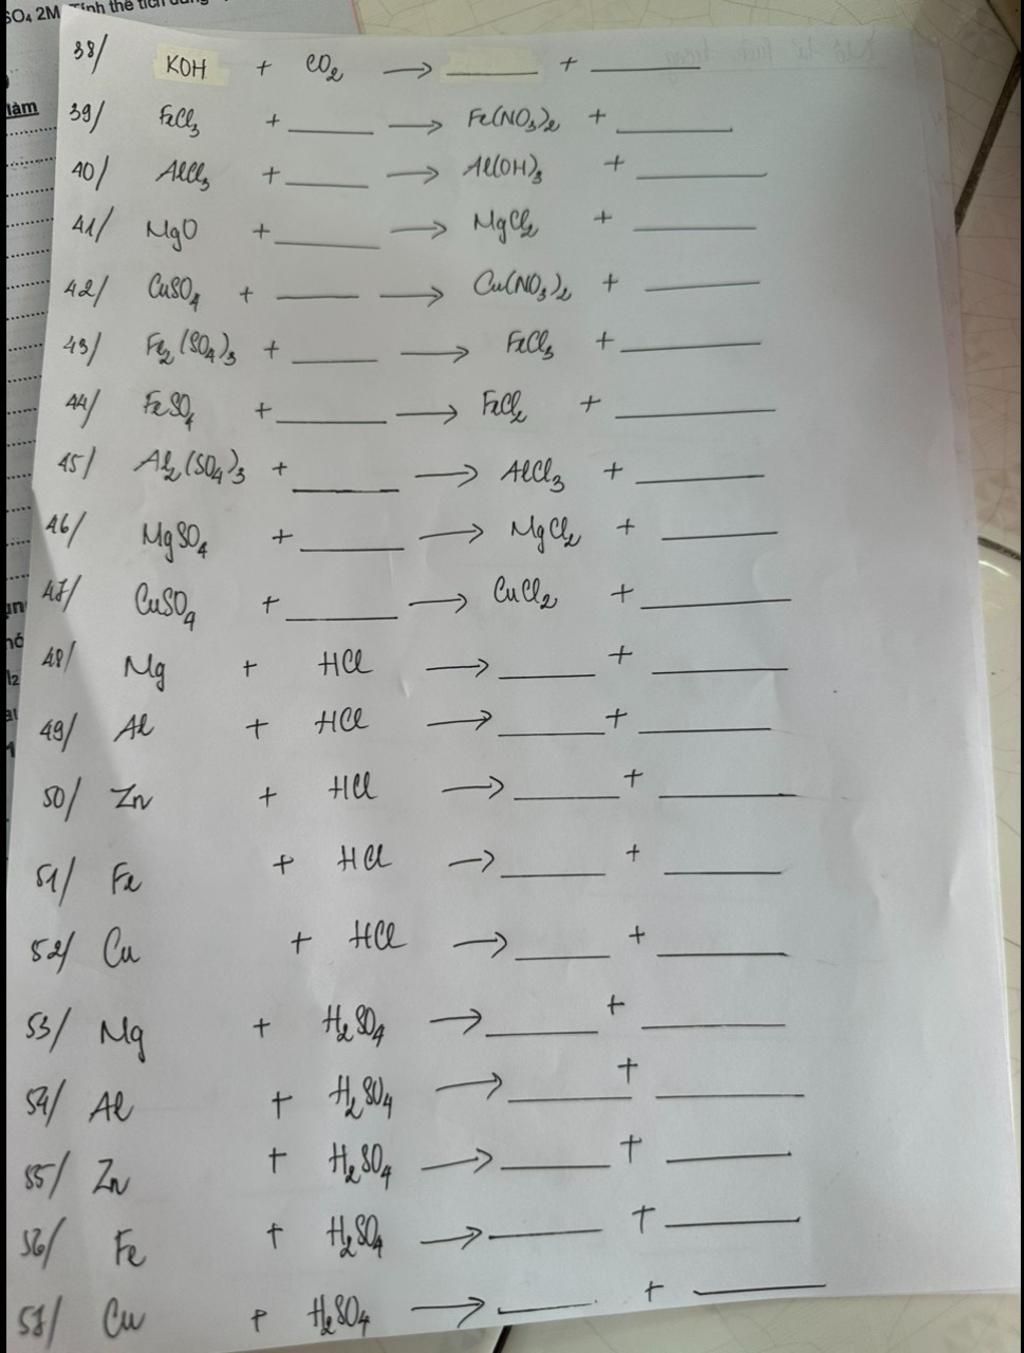 SO₄ 2M. Tính thể tích dung
làm
38/ KOH + CO₂ → ____ + ____
39/ FeCl₃ + ____ → Fe(NO₃)₂ + ____
40/ AlCl₃ + ____ → Al(OH)₃ + ____
41/ MgO + ____ → MgCl₂ + ____
42/ CuSO₄ + ____ → Cu(NO₃)₂ + ____
43/ Fe₂(SO₄)₃ + ____ → FeCl₃ + ____
44/ FeSO₄ + ____ → FeCl₂ + ____
45/ Al₂(SO₄)₃ + ____ → AlCl₃ + ____
46/ MgSO₄ + ____ → MgCl₂ + ____
47/ CuSO₄ + ____ → CuCl₂ + ____
48/ Mg + HCl → ____ + ____
49/ Al + HCl → ____ + ____
50/ Zn + HCl → ____ + ____
51/ Fe + HCl → ____ + ____
52/ Cu + HCl → ____ + ____
53/ Mg + H₂SO₄ → ____ + ____
54/ Al + H₂SO₄ → ____ + ____
55/ Zn + H₂SO₄ → ____ + ____
56/ Fe + H₂SO₄ → ____ + ____
57/ Cu + H₂SO₄ → ____ + ____